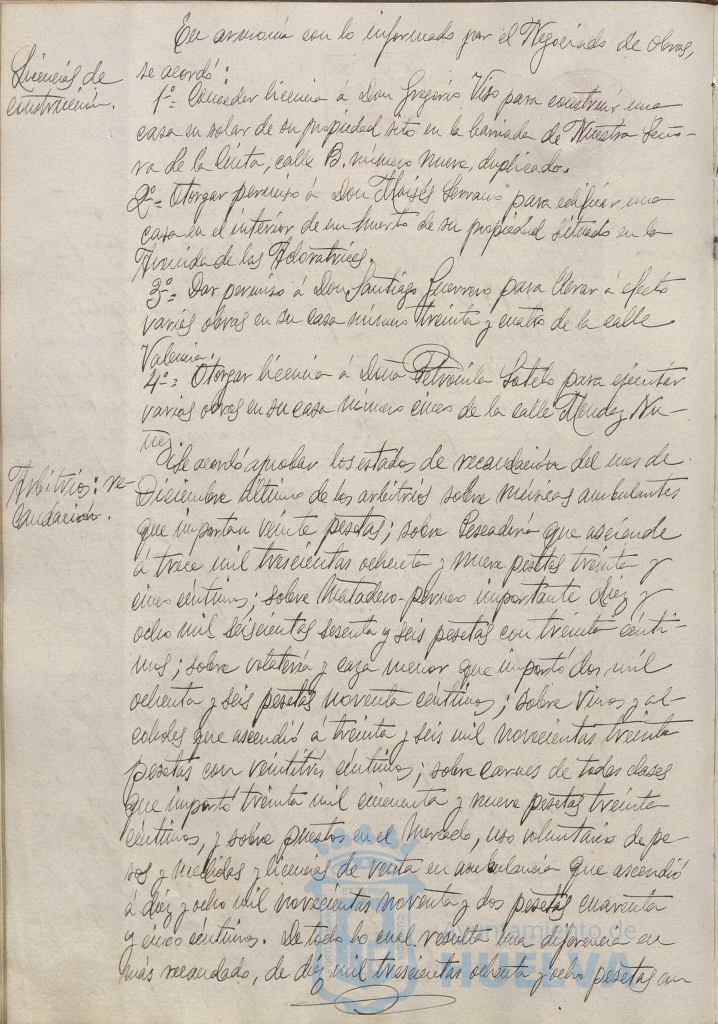 En armonía con lo informado por el Negociado de Obras,
Licencias de
construcción.
se acordó:
1º= Conceder licencia á Don Gregorio Viso para construir una
casa en solar de su propiedad sito en la barriada de Nuestra Seño-
ra de la Cinta, calle B. número nueve, duplicado.
2º= Otorgar permiso á Don Moisés Serrano para edificar una
casa en el interior de un huerto de su propiedad situado en la
Avenida de las Adoratrices.
3º= Dar permiso á Don Santiago Guerrero para llevar á efecto
varias obras en su casa número treinta y cuatro de la calle
Valencia.
4º= Otorgar licencia á Doña Petronila Sotelo para ejecutar
varias obras en su casa número cinco de la calle Mendez Nu-
ñez.
Arbitrios: re-
caudación.
Se acordó aprobar los estados de recaudación del mes de
Diciembre último de los arbitrios sobre músicas ambulantes
que importan veinte pesetas; sobre Pescadería que asciende
á trece mil trescientas ochenta y nueve pesetas treinta y
cinco céntimos; sobre Matadero-porcino importante diez y
ocho mil seiscientas sesenta y seis pesetas con treinta cénti-
mos; sobre volatería y caza menor que importó dos mil
ochenta y seis pesetas noventa céntimos; sobre vinos y al-
coholes que ascendió á treinta y seis mil novecientas treinta
pesetas con veintitrés céntimos; sobre carnes de todas clases
que importó treinta mil cincuenta y nueve pesetas treinta
céntimos, y sobre puestos en el Mercado, uso voluntario de pe-
sos y medidas y licencias de venta en ambulancia que ascendió
á diez y ocho mil novecientas noventa y dos pesetas cuarenta
y cinco céntimos. De todo lo cual resulta una diferencia en
más recaudado, de diez mil trescientas ochenta y ocho pesetas con
Ayuntamiento de
HUELVA